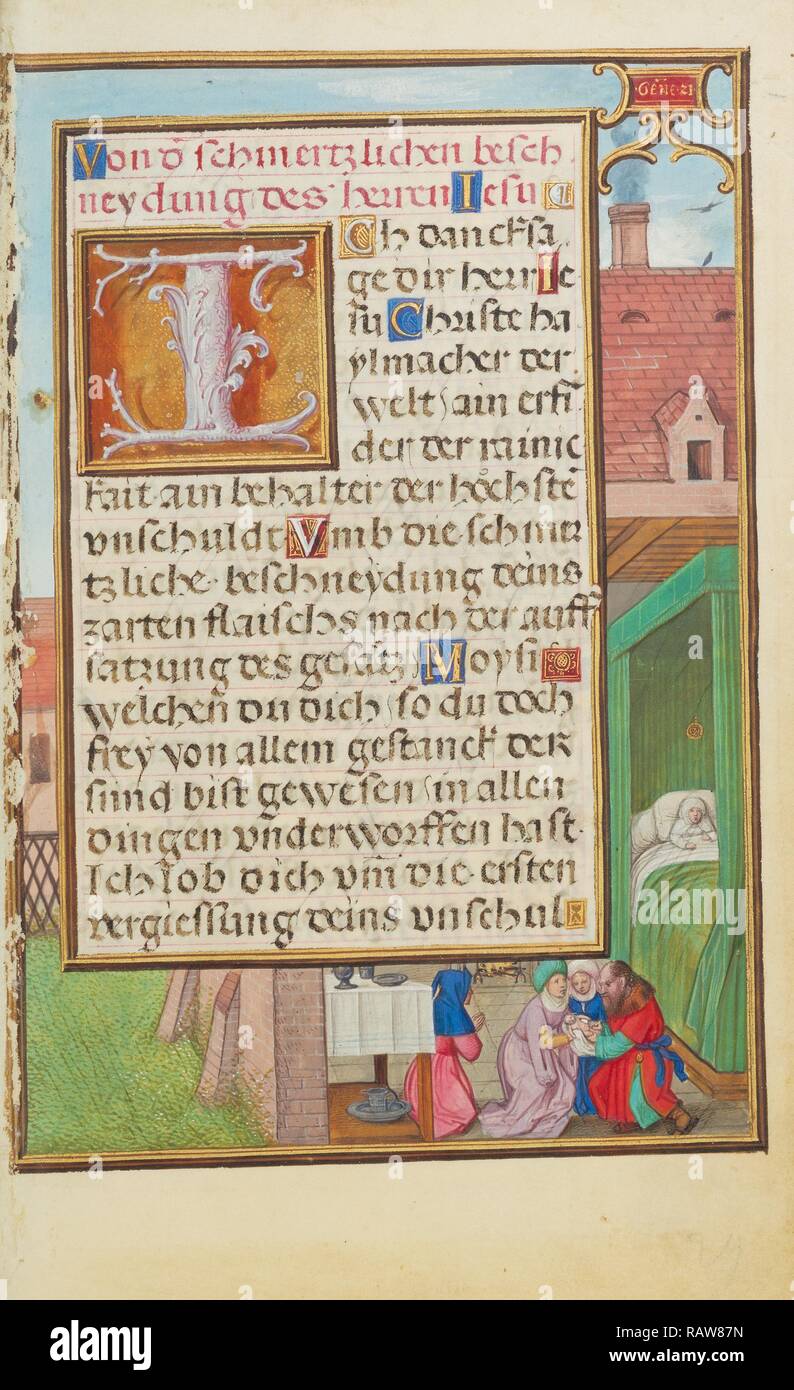 Gēne·21
Von d̄ schmertzlichen besch
neydung des herren Iesu
I
Ch dancksa
ge dir herr Ie
su Christe ha
ylmacher der
welt, ain erfi
der der rainic
kait ain behalter der höchstē
vnschuldt Vmb die schmer
tzliche beschneydung deins
zarten flaischs nach der auff
satzung des gesätz Moysi
welchen du dich, so du doch
frey von allem gestanck der
sünd bist gewesen, in allen
dingen vnderworffen hast.
Ich lob dich vm̄ die ersten
vergiessung deins vnschul
a alamy stock photo
RAW87N
www.alamy.com